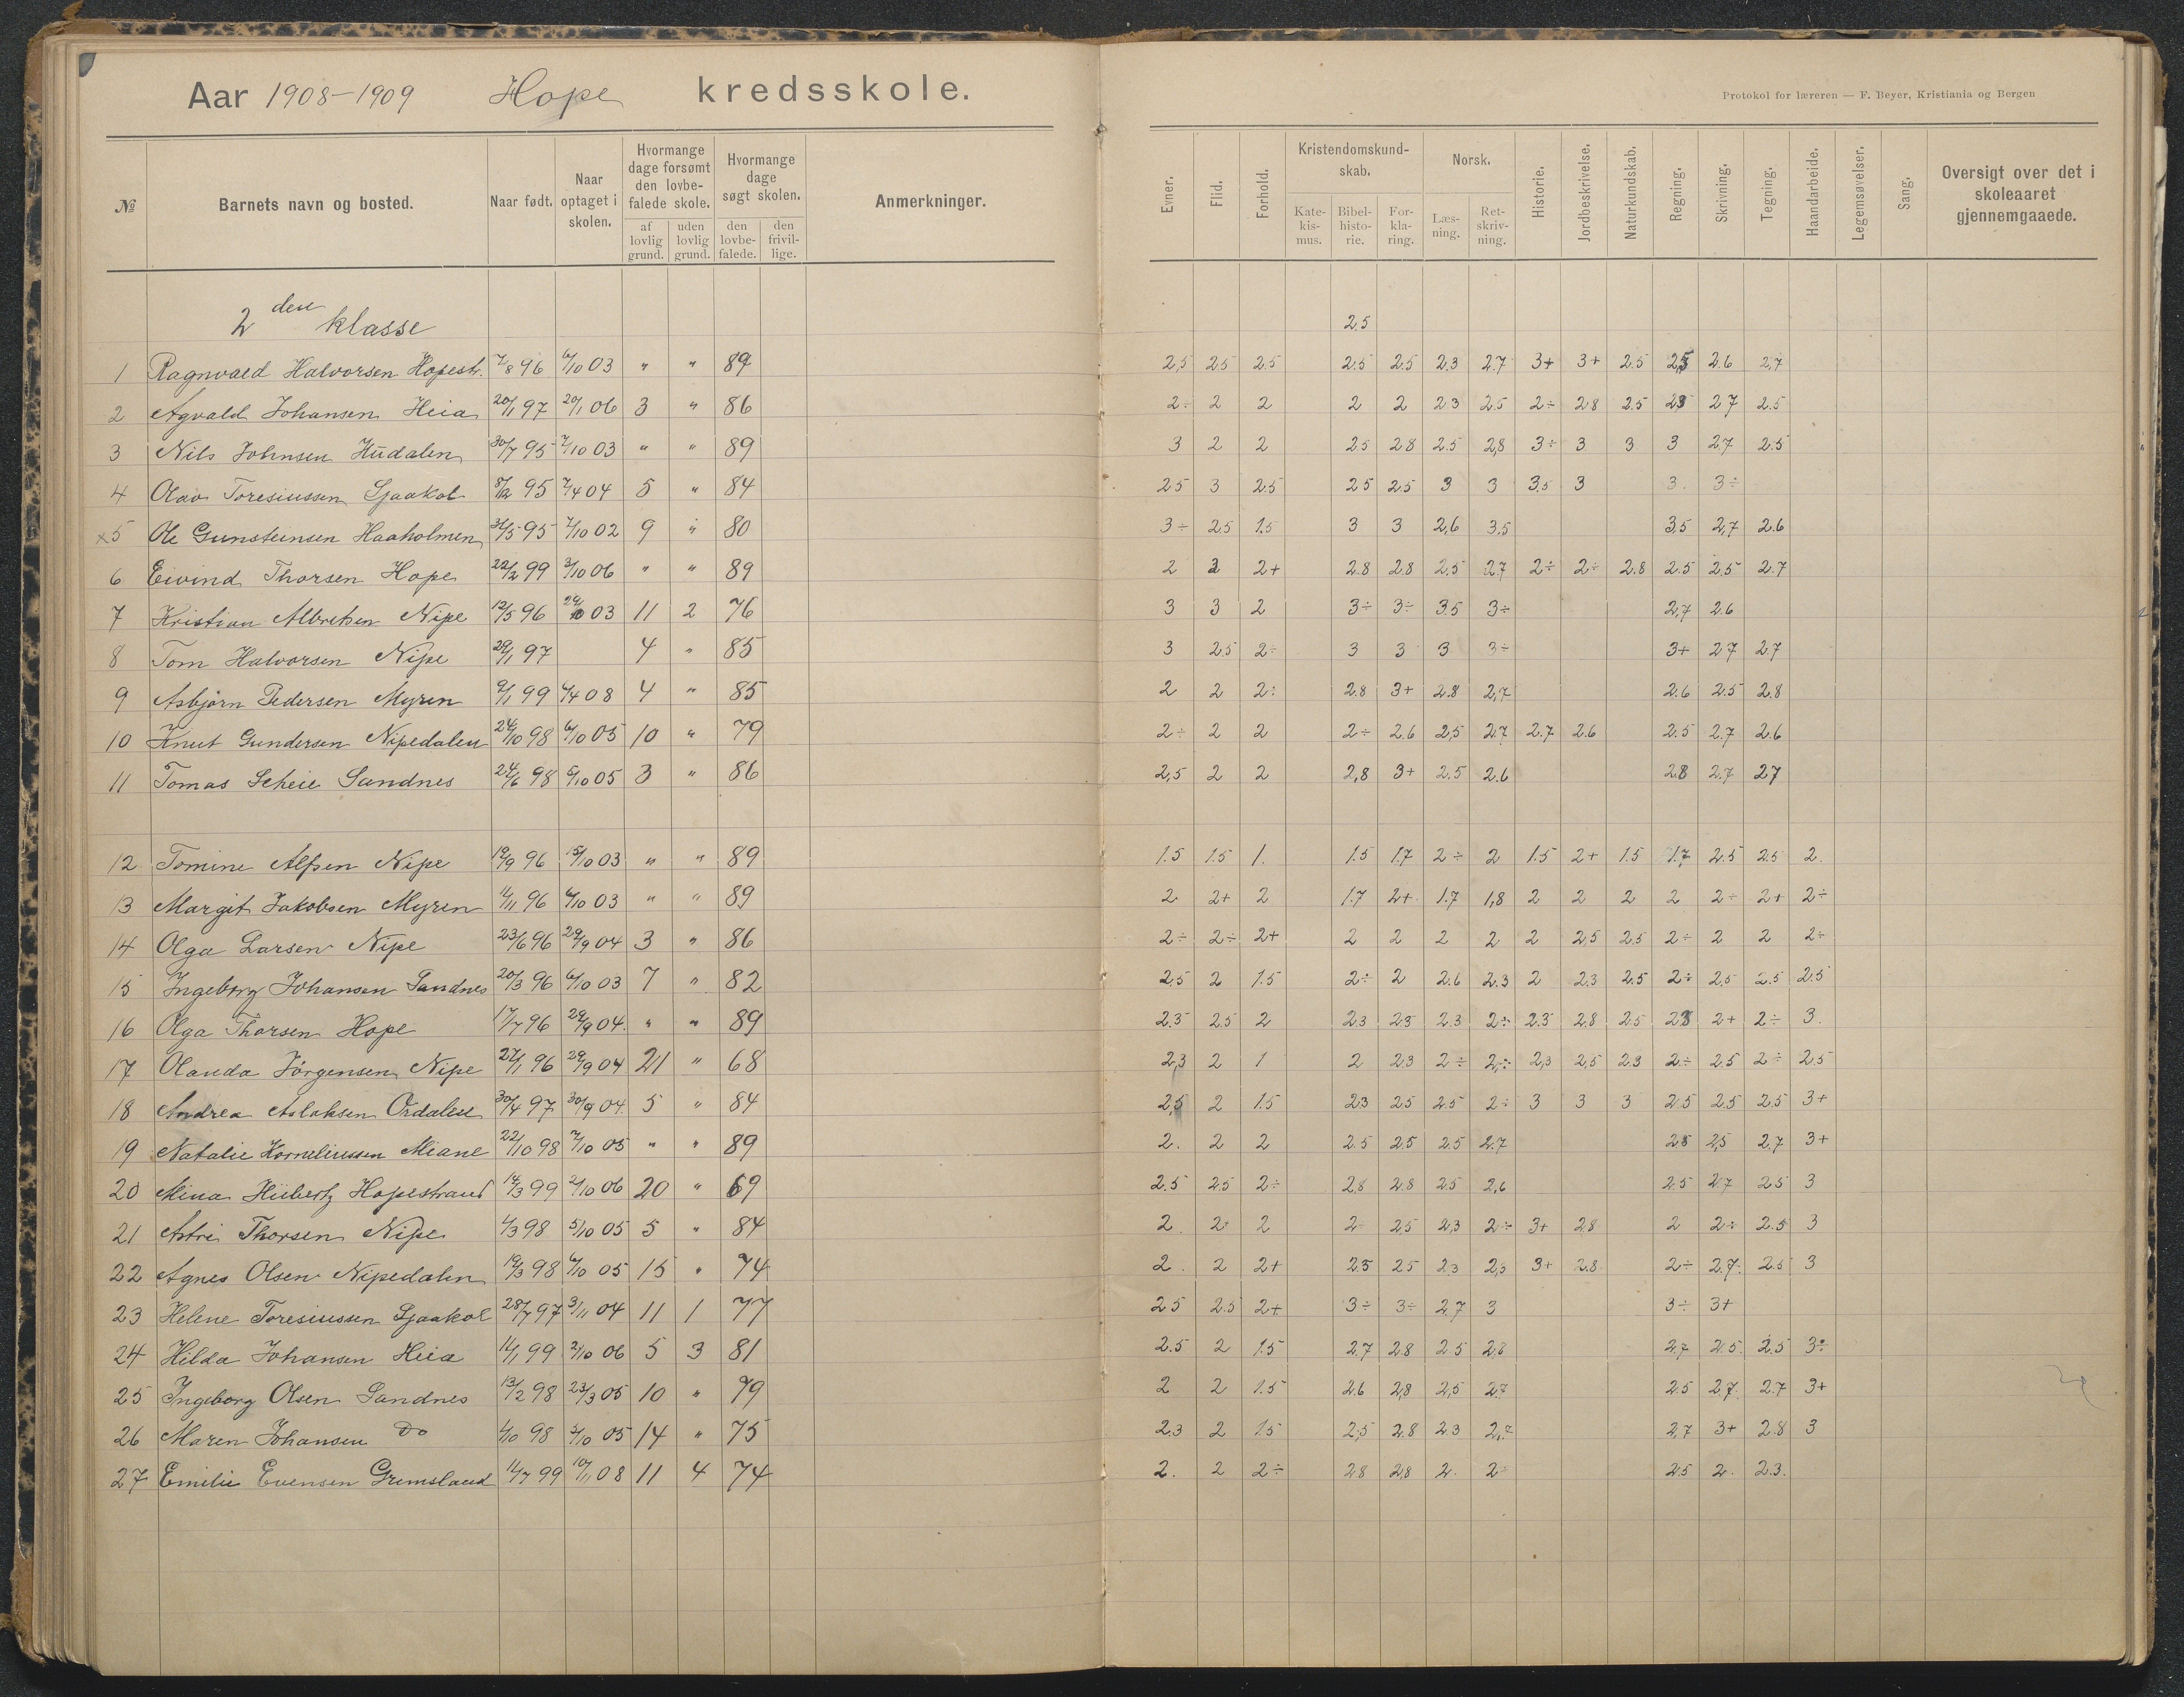 Aar 1908-1909 Hope kredsskole.
Protokol for læreren — F. Beyer, Kristiania og Bergen
№ Barnets navn og bosted. Naar født. Naar optaget i skolen. Hvormange dage forsømt den lovbefalede skole. af lovlig grund. uden lovlig grund. Hvormange dage søgt skolen. den lovbefalede. den frivillige. Anmerkninger.
Evner. Flid. Forhold. Kristendomskundskab. Katekismus. Bibelhistorie. Forklaring. Norsk. Læsning. Retskrivning. Historie. Jordbeskrivelse. Naturkundskab. Regning. Skrivning. Tegning. Haandarbeide. Legemsøvelser. Sang. Oversigt over det i skoleaaret gjennemgaaede.
2den klasse 2.5
1 Ragnvald Halvorsen Hopestr. 7/8 96 6/10 03 " " 89 2,5 2.5 2.5 2.5 2.5 2.3 2.7 3+ 3+ 2.5 2,5 2.6 2,7
2 Agvald Johansen Heia 20/1 97 20/1 06 3 " 86 2÷ 2 2 2 2 2.3 2.5 2÷ 2.8 2.5 2.3 2.7 2.5
3 Nils Johnsen Hudalen 30/7 95 7/10 03 " " 89 3 2 2 2.5 2.8 2.5 2,8 3÷ 3 3 3 2.7 2.5
4 Olav Toresiussen Sjaakol 8/12 95 7/4 04 5 " 84 2.5 3 2.5 2.5 2.5 3 3 3,5 3 3. 3÷
x5 Ole Gunsteinsen Haaholmen 31/5 95 7/10 02 9 " 80 3÷ 2.5 1.5 3 3 2,6 3.5 3,5 2,7 2.6
6 Eivind Thorsen Hope 22/2 99 3/10 06 " " 89 2 2 2+ 2.8 2.8 2,5 2.7 2÷ 2÷ 2.8 2.5 2,5 2.7
7 Kristian Albretsen Nipe 12/5 96 29/10 03 11 2 76 3 3 2 3÷ 3÷ 3.5 3÷ 2,7 2.6
8 Tom Halvorsen Nipe 29/1 97 4 " 85 3 2.5 2÷ 3 3 3 3÷ 3+ 2.7 2.7
9 Asbjørn Pedersen Myren 9/1 99 4/4 08 4 " 85 2 2 2÷ 2.8 3+ 2.8 2,7 2.6 2.5 2.8
10 Knut Gundersen Nipedalen 24/10 98 6/10 05 10 " 79 2÷ 2 2 2÷ 2.6 2,5 2.7 2.7 2.6 2.5 2.7 2.6
11 Tomas Scheie Sandnes 24/6 98 5/10 05 3 " 86 2,5 2 2 2,8 3+ 2.5 2.6 2.8 2.7 2.7
12 Tomine Alfsen Nipe 19/9 96 15/10 03 " " 89 1.5 1.5 1. 1.5 1.7 2÷ 2 1.5 2+ 1.5 1.7 2.5 2.5 2.
13 Margit Jakobsen Myren 11/11 96 6/10 03 " " 89 2 2+ 2 1.7 2+ 1.7 1,8 2 2 2 2 2÷ 2+ 2÷
14 Olga Larsen Nipe 23/6 96 29/9 04 3 " 86 2÷ 2÷ 2+ 2 2 2 2 2 2,5 2.5 2÷ 2 2 2÷
15 Ingeborg Johansen Sandnes 20/3 96 6/10 03 7 " 82 2,5 2 1.5 2÷ 2 2.6 2.3 2 2.3 2.5 2÷ 2,5 2.5 2.5
16 Olga Thorsen Hope 17/7 96 29/9 04 " " 89 2.3 2.5 2 2.3 2.3 2.3 2÷ 2.3 2.8 2.5 2.8 2+ 2÷ 3.
17 Olanda Jörgensen Nipe 27/1 96 29/9 04 21 " 68 2,3 2 1 2 2.3 2÷ 2÷ 2,3 2,5 2.3 2÷ 2.5 2÷ 2.5
18 Andrea Aslaksen Ordalen 30/4 97 30/9 04 5 " 84 2,5 2 1.5 2.3 2.5 2.5 2÷ 3 3 3 2.5 2.5 2.5 3+
19 Natalie Korneliussen Miane 22/10 98 7/10 05 " " 89 2. 2 2 2.5 2.5 2.5 2.7 2.8 2,5 2.7 3+
20 Mina Hübertz Hopestrand 14/3 99 2/10 06 20 " 69 2.5 2.5 2÷ 2,8 2.8 2.5 2,6 2.5 2.7 2.5 3
21 Astri Thorsen Nipe 4/3 98 5/10 05 5 " 84 2. 2 2 2÷ 2,5 2,3 2÷ 3+ 2.8 2 2÷ 2.5 3
22 Agnes Olsen Nipedalen 19/3 98 6/10 05 15 " 74 2. 2 2+ 2.5 2.5 2.3 2,3 3+ 2.8 2÷ 2.7 2.5 3
23 Helene Toresiussen Sjaakol 28/7 97 3/11 04 11 1 77 2.5 2.5 2+ 3÷ 3÷ 2.7 3 3÷ 3+
24 Hilda Johansen Heia 11/1 99 2/10 06 5 3 81 2.5 2 1.5 2.7 2.8 2.5 2.8 2.7 2.5 2.5 3÷
25 Ingeborg Olsen Sandnes 13/2 98 23/3 05 10 " 79 2 2 1.5 2.6 2,8 2,5 2.7 2.5 2,7 2.7 3+
26 Maren Johansen Do 4/10 98 5/10 05 14 " 75 2.3 2 1.5 2,5 2.8 2.3 2,7 2,7 3+ 2.8 3
27 Emilie Evensen Grimsland 11/7 99 10/11 08 11 4 74 2. 2 2÷ 2.8 2,8 2. 2 2.5 2. 2.3.